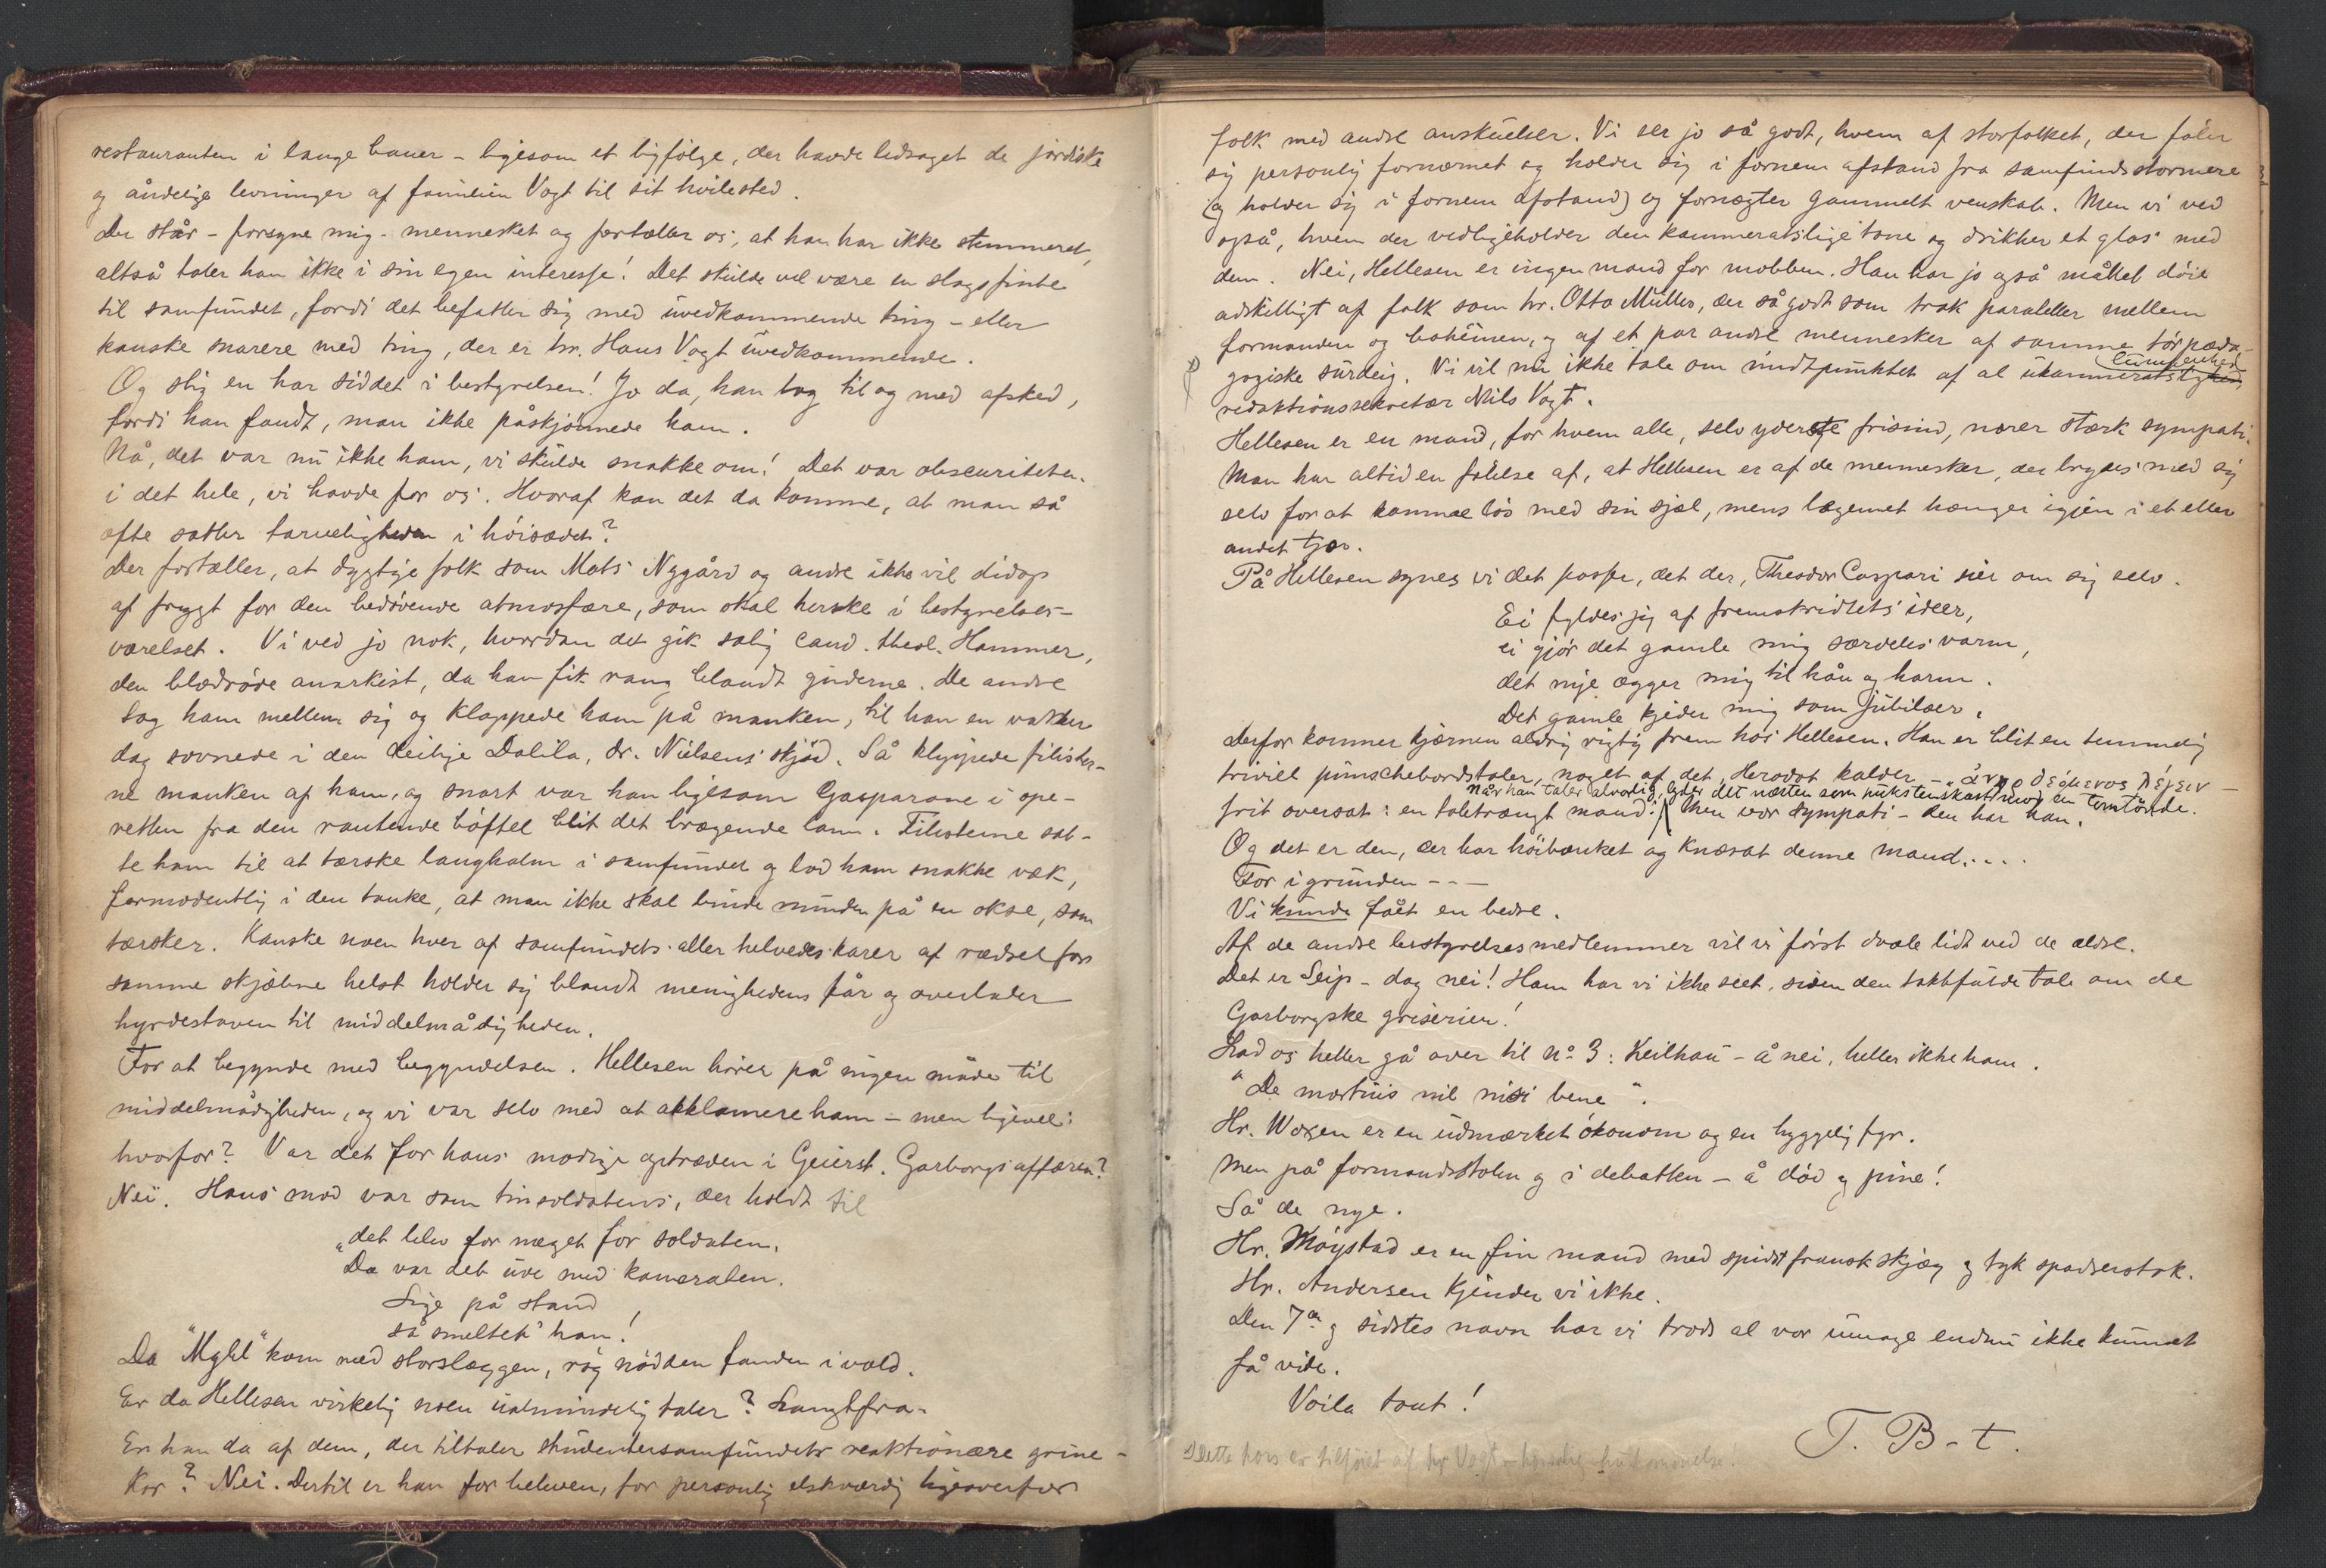 restauranten i lange baner - ligesom et ligfølge, der havde ledsaget de jordiske
og åndelige levninger af familien Vogt til sit hvilested.
Der står - forsyne mig - mennesket og fortæller os, at han har ikke stemmeret,
altså taler han ikke i sin egen interesse! Det skulde vel være en slags finte
til samfundet, fordi det befatter sig med uvedkommende ting - eller
kanske snarere med ting, der er hr. Hans Vogt uvedkommende.
Og slig en har siddet i bestyrelsen! Jo da, han tog til og med afsked,
fordi han fandt, man ikke påskjønnede ham.
Nå, det var nu ikke ham, vi skulde snakke om! Det var obscuriteten
i det hele, vi havde for os. Hvoraf kan det da komme, at man så
ofte sætter tarveligheden i høisædet?
Der fortælles, at dygtige folk som Mats Nygård og andre ikke vil didop
af frygt for den bedøvende atmosfære, som skal herske i bestyrelses-
værelset. Vi ved jo nok, hvordan det gik salig cand. theol. Hammer,
den blodrøde anarkist, da han fik rang blandt guderne. De andre
tog ham mellem sig og klappede ham på manken, til han en vakker
dag sovnede i den deilige Dalila, dr. Nielsens skjød. Så klippede filister-
ne manken af ham, og snart var han ligesom Gasparone i ope-
retten fra den rautende bøffel blit det brægende lam. Filisterne sat-
te ham til at tærske langhalm i samfundet og lod ham snakke væk,
formodentlig i den tanke, at man ikke skal binde munden på en okse, som
tærsker. Kanske noen hver af samfundets aller helvedes karer af rædsel for
samme skjæbne helst holder sig blandt menighedens får og overlader
hyrdestaven til middelmådigheden.
For at begynde med begyndelsen. Hellesen hører på ingen måde til
middelmådigheden, og vi var selv med at akklamere ham - men ligevel:
hvorfor? Var det for hans modige optræden i Geierst. Garborgs affæren?
Nei. Hans mod var som tinsoldatens, der holdt til
„det blev for meget for soldaten.
Da var det ude med kameraten.
Lige på stand
så smelted' han!
Da "Mgbl" kom med storslæggen, røg nødden fanden i vold.
Er da Hellesen virkelig noen ualmindelig taler? Langtfra.
Er han da af dem, der tiltaler studentersamfundets reaktionære grine-
kor? Nei. Dertil er han for beleven, for personlig elskværdig ligeoverfor
folk med andre anskuelser. Vi ser jo så godt, hvem af storfolket, der føler
sig personlig fornærmet og holder sig i fornem afstand fra samfundsstormere
(og holder sig i fornem afstand) og fornægter gammelt venskab. Men vi ved
også, hvem der vedligeholder den kammeratslige tone og drikker et glas med
dem. Nei, Hellesen er ingen mand for mobben. Han har jo også måttet døie
adskilligt af folk som hr. Otto Müller, der så godt som trak paralleller mellem
formanden og bohêmen, og af et par andre mennesker af samme tørpæda-
gogiske surdeig. Vi vil nu ikke tale om midtpunktet af al ukammeratslighed,
redaktionssekretær Nils Vogt.
Hellesen er en mand, for hvem alle, selv yderste frisind, nærer stærk sympati.
Man har altid en følelse af, at Hellesen er af de mennesker, der brydes med sig
selv for at komme løs med sin sjæl, mens legemet hænger igjen i et eller
andet tjær.
På Hellesen synes vi det passer, det der, Theodor Caspari sier om sig selv.
Ei fyldes jeg af fremskridtets ideer,
ei gjør det gamle mig særdeles varm,
det nye ægger mig til hån og harm.
Det gamle kjeder mig som jubilæer.
Derfor kommer kjærnen aldrig rigtig frem hos Hellesen. Han er blit en temmelig
triviel punschebordstaler, noget af det Herodot kalder - δεόμενος λέγειν -
når han taler alvorlig, lyder det næsten som pukstenskastning en tomtønde.
frit oversat: en taletrængt mand. Men vor sympati - den har han.
Og det er den, der har høibænket og knæsat denne mand....
For i grunden - - -
Vi kunde fået en bedre.
Af de andre bestyrelsesmedlemmer vil vi først dvæle lidt ved de ældre.
Det er Seip - dog nei! Ham har vi ikke seet, siden den taktfulde tale om de
Garborgske griserier!
Lad os heller gå over til No 3: Keilhau - å nei, heller ikke ham.
"De mortuis nil nisi bene".
Hr. Woxen er en udmærket økonom og en hyggelig fyr.
Men på formandsstolen og i debatten - å død og pine!
Så de nye.
Hr. Møystad er en fin mand med spidst fransk skjæg og tyk spadserstok.
Hr. Andersen kjender vi ikke.
Den 7de og sidstes navn har vi trods al vor umage endnu ikke kunnet
få vide.
Voila tout!
T. B-t.
Dette kors er tilføiet af hr Vogt -